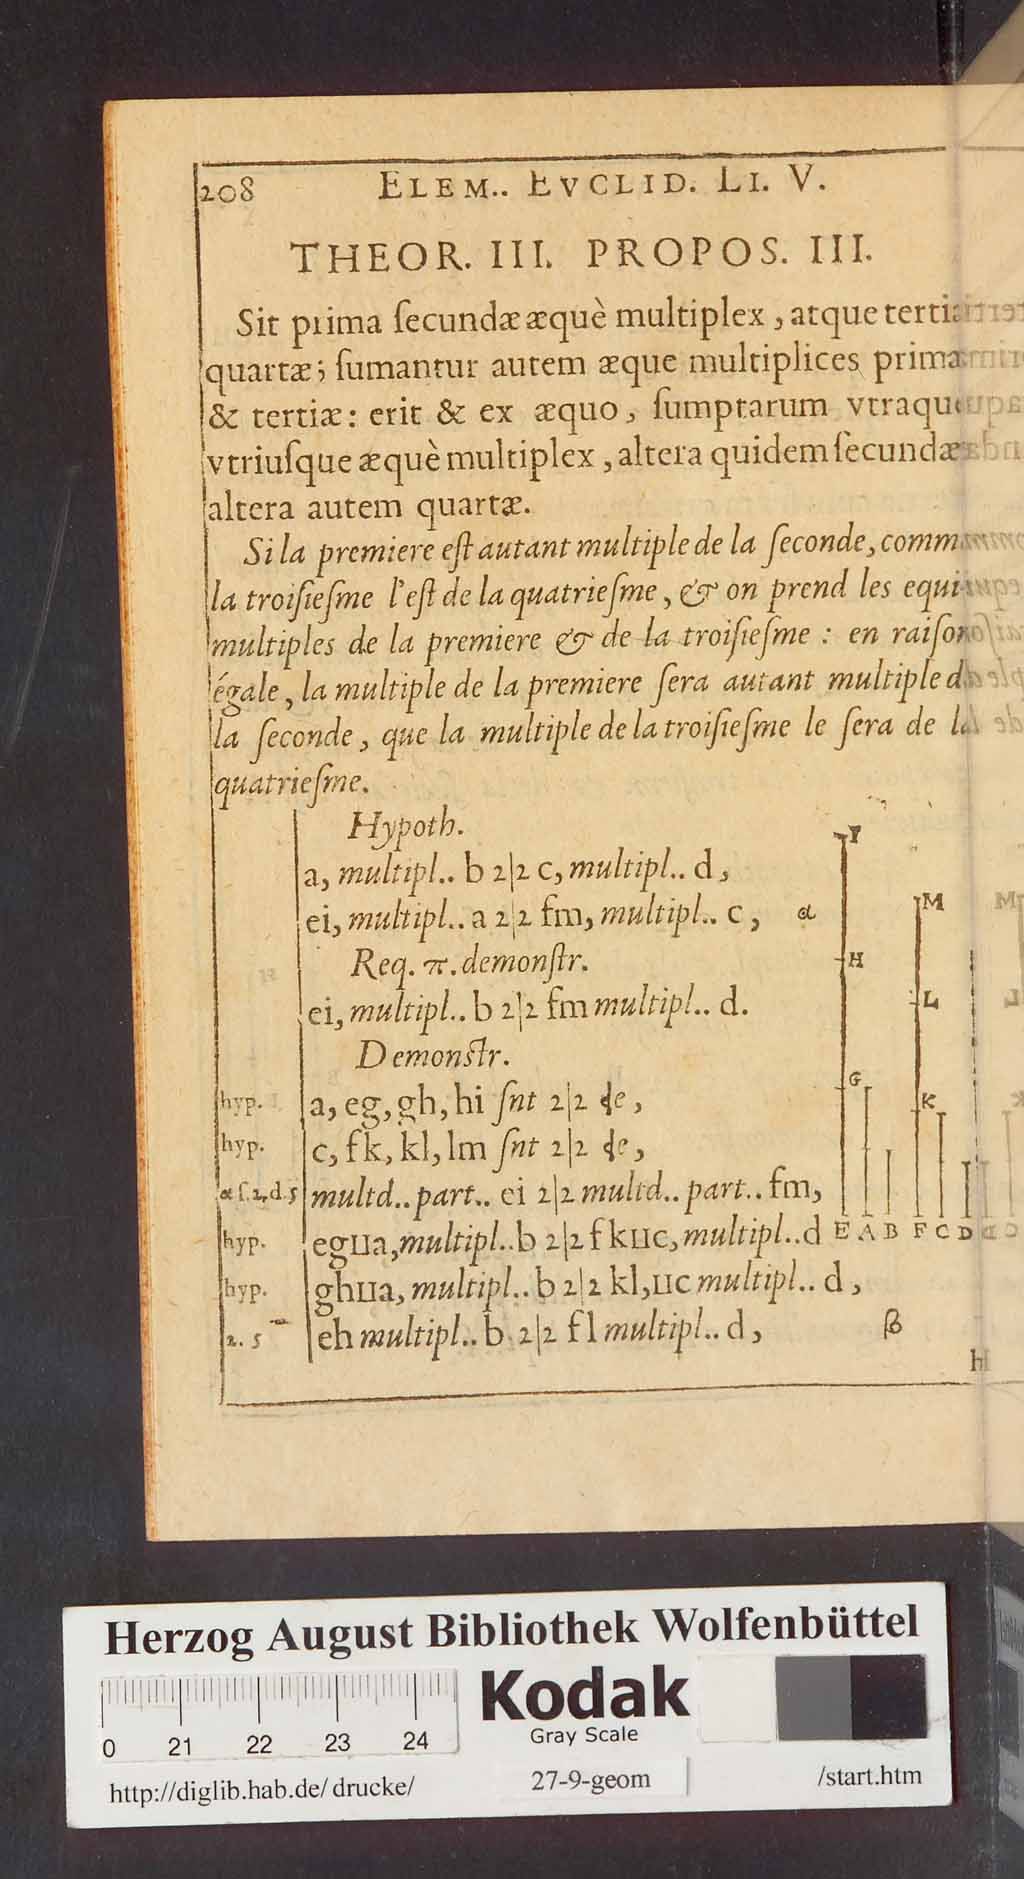 208 ELEM.. EVCLID. LI. V.
THEOR. III. PROPOS. III.
Sit prima ſecundæ æquè multiplex, atque tertia
quartæ; ſumantur autem æque multiplices primæ
& tertiæ: erit & ex æquo, ſumptarum vtraque
vtriuſque æquè multiplex, altera quidem ſecundæ
altera autem quartæ.
Si la premiere eſt autant multiple de la ſeconde, comme
la troiſieſme l'eſt de la quatrieſme, & on prend les equi-
multiples de la premiere & de la troiſieſme : en raiſon
égale, la multiple de la premiere ſera autant multiple de
la ſeconde, que la multiple de la troiſieſme le ſera de la
quatrieſme.
Hypoth.
a, multipl.. b 2|2 c, multipl.. d,
ei, multipl.. a 2|2 fm, multipl.. c, α
Req. π. demonſtr.
ei, multipl.. b 2|2 fm multipl.. d.
Demonſtr.
hyp. a, eg, gh, hi ſnt 2|2 de,
hyp. c, fk, kl, lm ſnt 2|2 de,
α f. 2, d. 5 multd.. part.. ei 2|2 multd.. part.. fm,
hyp. egııa, multipl.. b 2|2 fkııc, multipl.. d
hyp. ghııa, multipl.. b 2|2 kl,ııc multipl.. d,
2. 5 eh multipl.. b 2|2 fl multipl.. d, β
h
I
M
H
L
G
K
E A B F C D
Herzog August Bibliothek Wolfenbüttel
Kodak
Gray Scale
0 21 22 23 24
http://diglib.hab.de/drucke/ 27-9-geom /start.htm